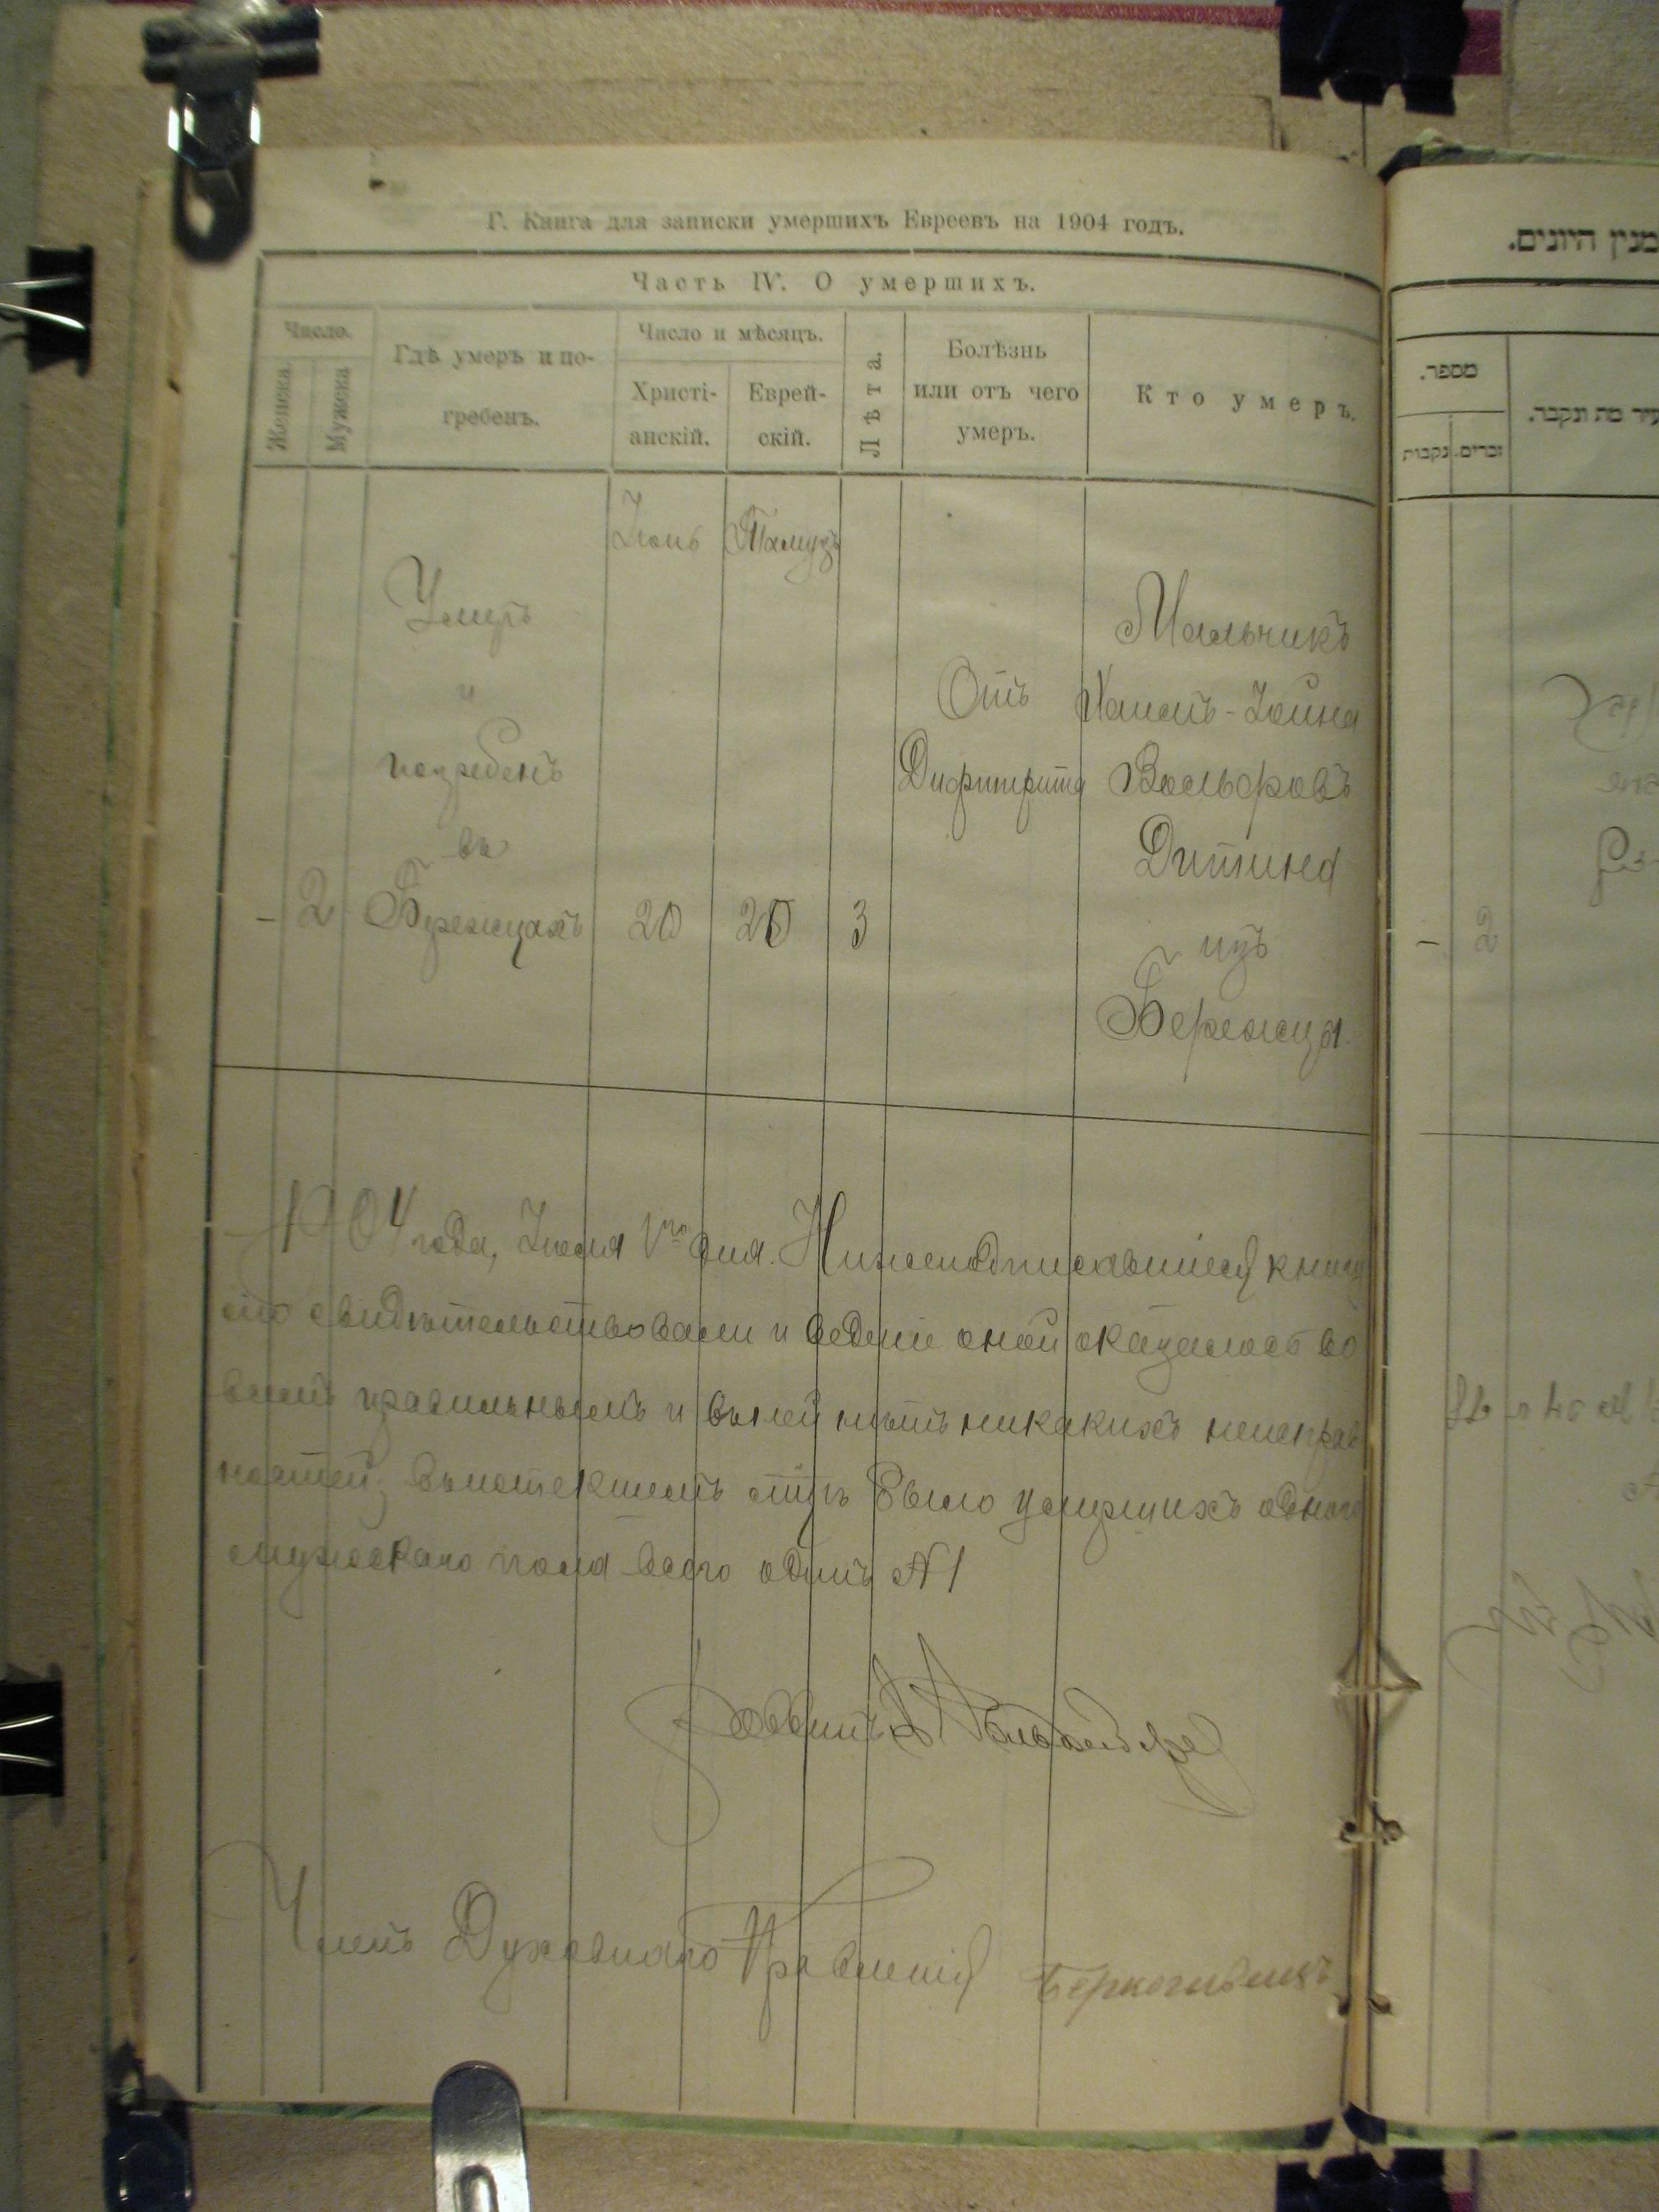 Г. Книга для записки умершихъ Евреевъ на 1904 годъ.
Часть IV. О умершихъ.
Число.
Женска
Мужеска
Гдѣ умеръ и по-
гребенъ.
Число и мѣсяцъ.
Христі-
анскій.
Еврей-
скій.
Лѣта.
Болѣзнь
или отъ чего
умеръ.
Кто умеръ.
Умеръ
и
погребенъ
въ
Бережцахъ
- 2
Іюнь
20
Тамузъ
20
3
Отъ
Дифтерита
Мальчикъ
Вольфовъ
изъ
Бережцы.
1904 года, Іюля 1го дня. Нижеподписавшіеся книгу
сію свидѣтельствовали и веденіе оной оказалось во
всемъ правильнымъ и въ ней нѣтъ никакихъ неисправ
ностей, въ истекшемъ было умершихъ одного
мужескаго пола всего одинъ №1
Раввинъ
Членъ Духовнаго Правленія
מנין היונים.
מספר.
זכרים.
נקבות
עיר מת ונקבר.
- 2